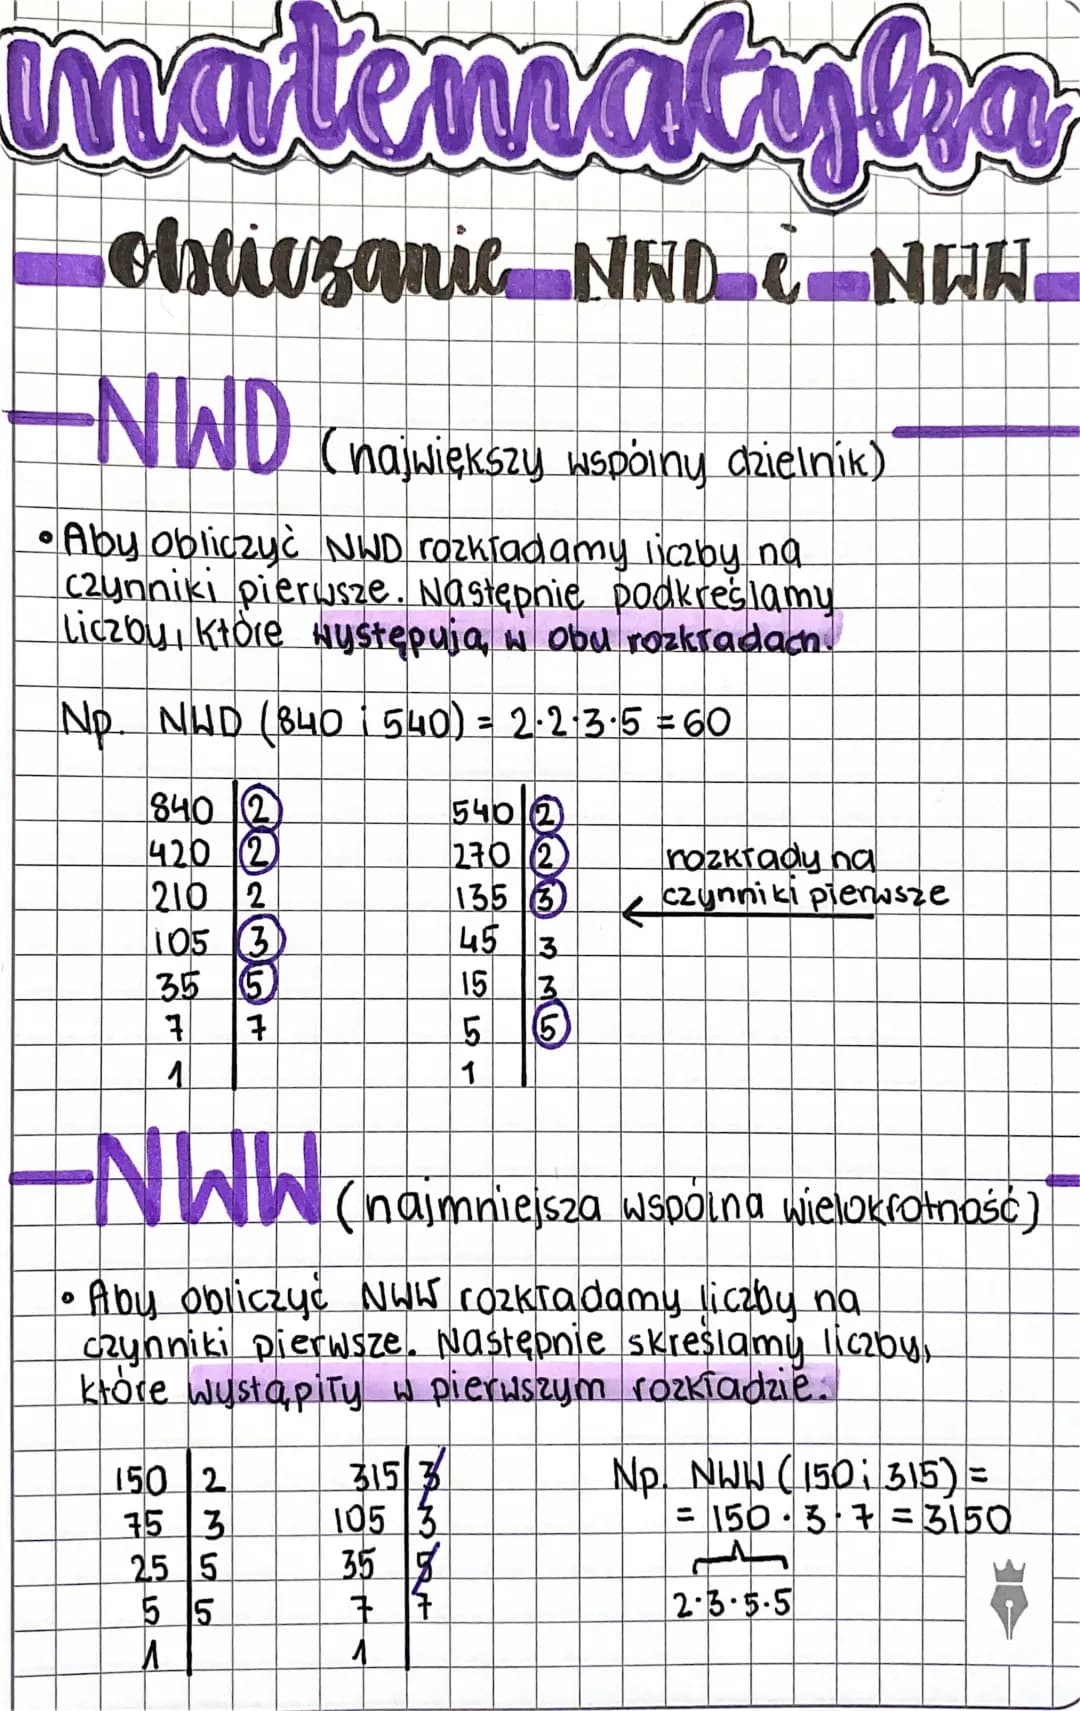 matematyka
obliczanie NWD i NWW
NWD (największy wspólny dzielnik)
• Aby obliczyć NWD rozkładamy liczby na
czynniki pierwsze. Następnie podkreślamy
liczby, które występują w obu rozkładach.
Np. NWD (840 i 540) = 2·2·3·5 = 60
840 | 2 540 | 2
420 | 2 270 | 2 rozkłady na
210 | 2 135 | 3 ← czynniki pierwsze
105 | 3 45 | 3
35 | 5 15 | 3
7 | 7 5 | 5
1 | 1 |
NWW (najmniejsza wspólna wielokrotność)
• Aby obliczyć NWW rozkładamy liczby na
czynniki pierwsze. Następnie skreślamy liczby,
które wystąpiły w pierwszym rozkładzie.
150 | 2 315 | 3 Np. NWW (150 i 315) =
75 | 3 105 | 3 = 150 · 3 · 7 = 3150
25 | 5 35 | 5
5 | 5 7 | 7 2·3·5·5
1 | 1 |